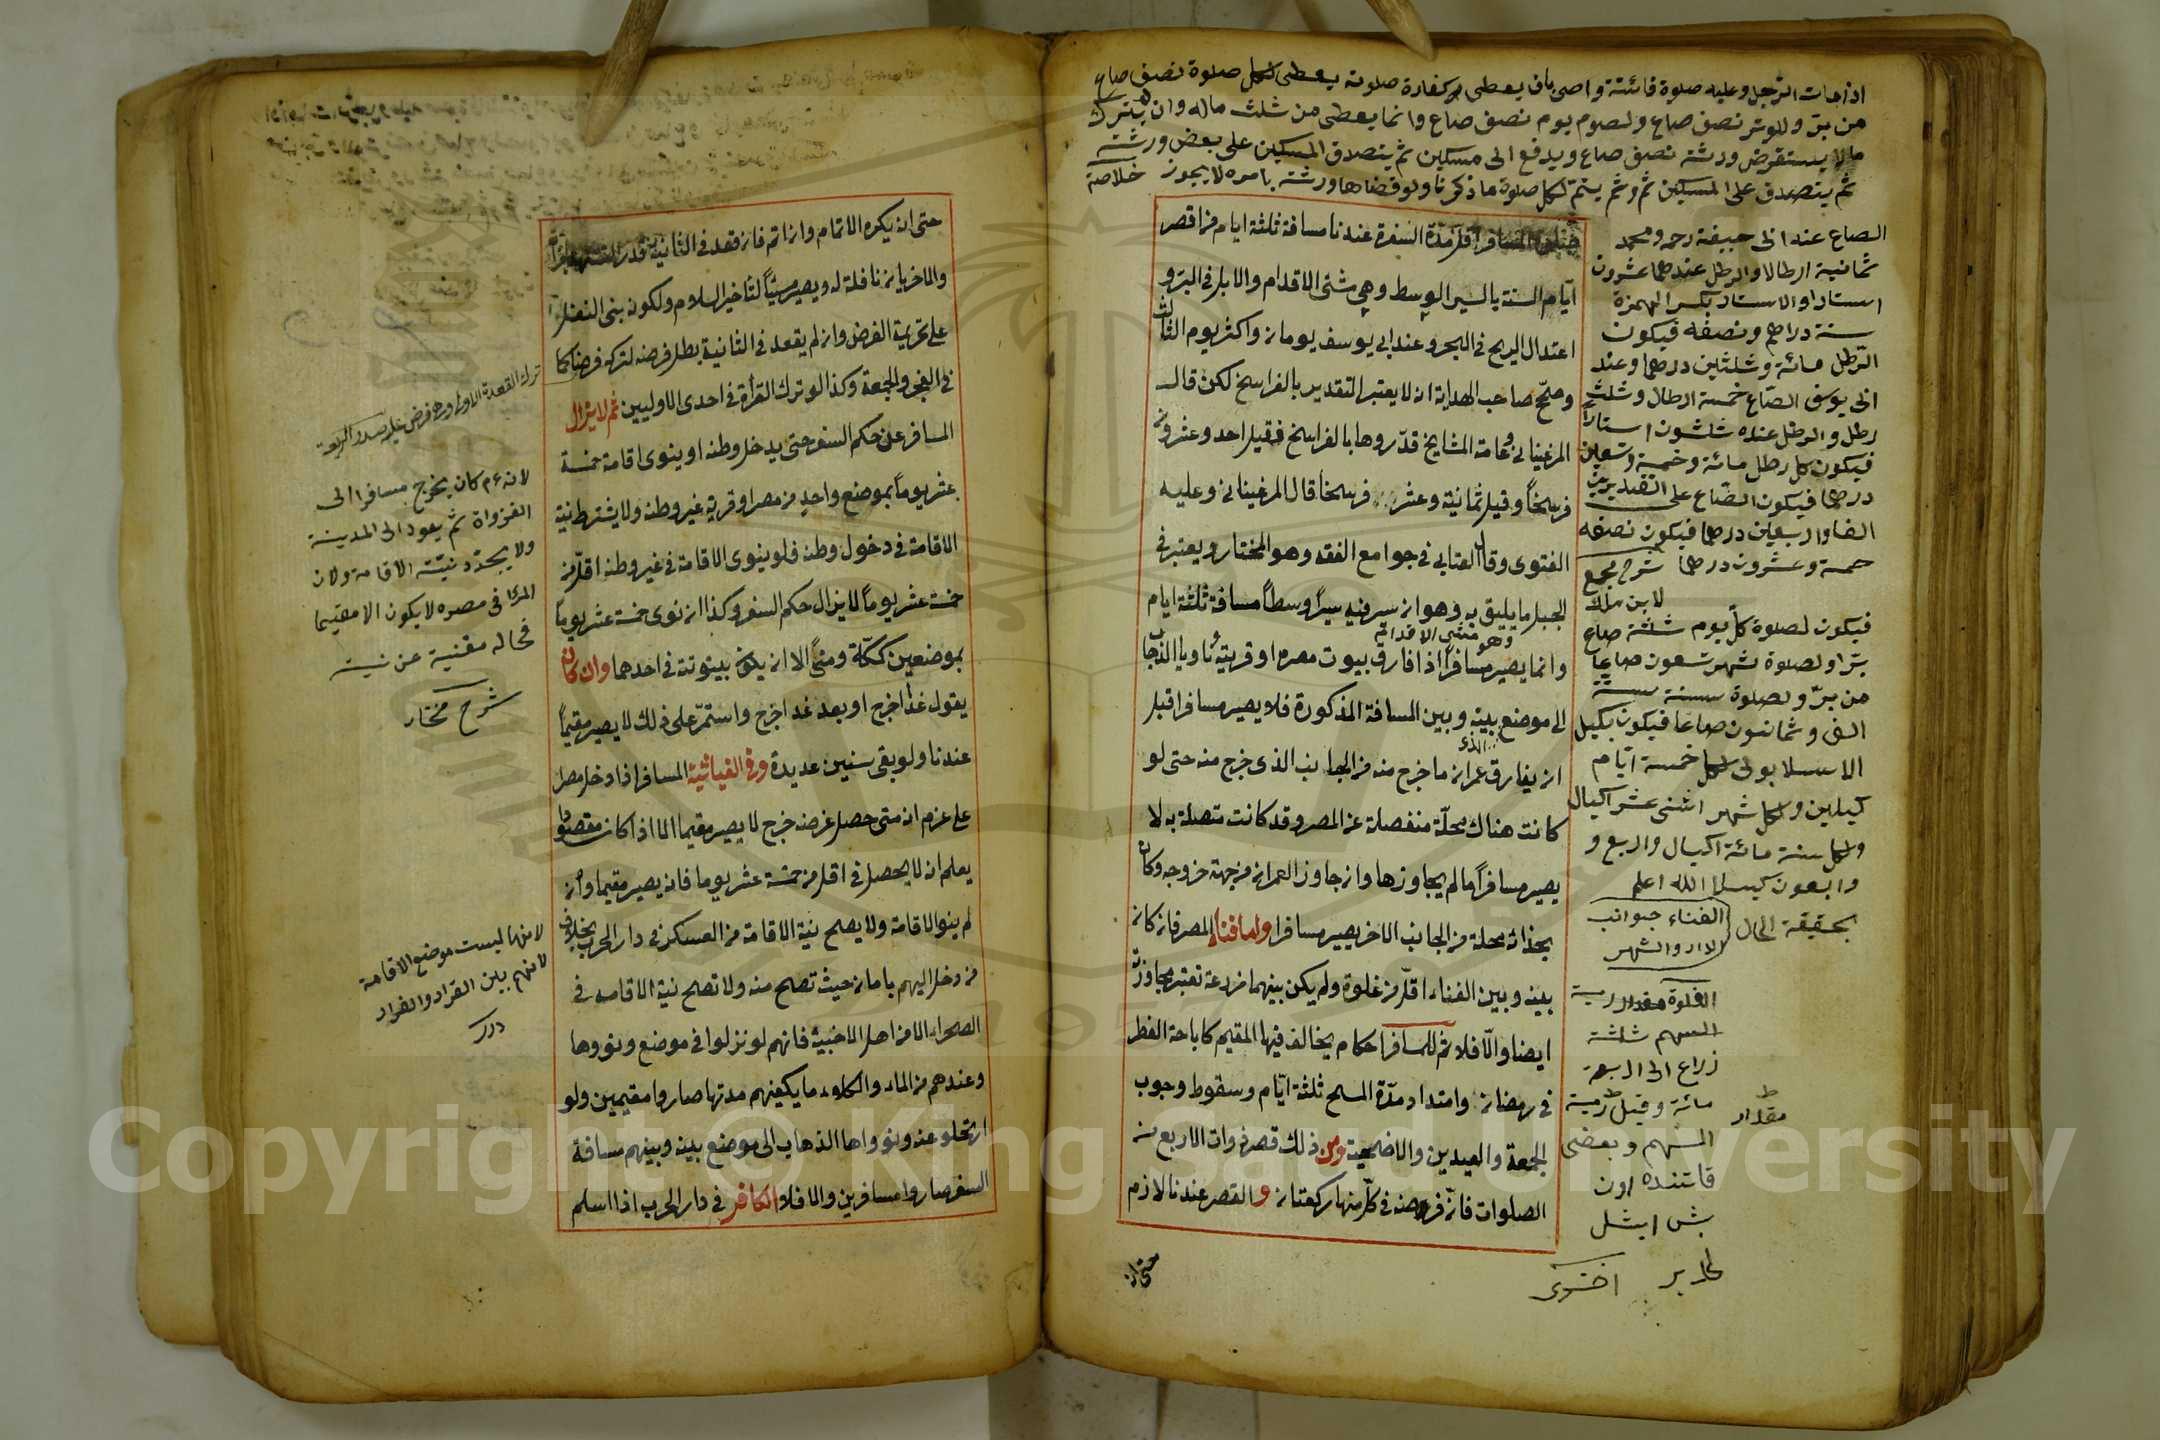 اذا مات الرجل وعليه صلوة فائتة واصى بان يعطى كفارة صلوته يعطى لكل صلوة نصف صاع
من برّ وللوتر نصف صاع ولصوم يوم نصف صاع وانما يعطى من ثلث ماله وان لم يترك
مالا يستقرض ورثته نصف صاع ويدفع الى مسكين ثم يتصدق المسكين على بعض ورثته
ثم يتصدق على المسكين ثم وثم يتم لكل صلوة ما ذكرنا ولو قضاها ورثته بامره لا يجوز خلاصة
المسافر اقل مدة السفرة عندنا مسافة ثلثة ايام من اقصر
ايّام السنة بالسير الوسط وهى مشى الاقدام والابل فى البرّ و
اعتدال الريح فى البحر وعند ابى يوسف يومان واكثر يوم الثالث
وصحّح صاحب الهداية انه لا يعتبر التقدير بالفراسخ لكن قال
المرغينانى وعامة المشايخ قدّروها بالفراسخ فقيل احد وعشرون
فرسخاً وقيل ثمانية وعشر فرسخا قال المرغينانى وعليه
الفتوى وقال العتابى فى جوامع الفقه وهو المختار ويعتبر فى
الجبل ما يليق به وهو ان سير فيه سيراً وسطاً مسافة ثلثة ايام
وهو مشى الاقدام
وانما يصير مسافراً اذا فارق بيوت مصره او قريته ناويا الذهاب
الى موضع بينه وبين المسافة المذكورة فلا يصير مسافرا قبل
ان يفارق عمران ما خرج منه من الجانب الذى خرج منه حتى لو
كانت هناك محلّة منفصلة عن المصر وقد كانت متصلة به لا
يصير مسافراً ما لم يجاوزها وان جاوز العمران من جهة خروجه وكان
بحذائه محلة من الجانب الاخر يصير مسافرا واما فناء المصر فان كان
بينه وبين الفناء اقلّ من غلوة ولم يكن بينهما مزرعة تعتبر مجاوزته
ايضا والّا فلا ثم للمسافر احكام يخالف فيها المقيم كاباحة الفطر
فى رمضان وامتداد مدّة المسح ثلثة ايّام وسقوط وجوب
الجمعة والعيدين والاضحية ومن ذلك قصر ذوات الاربع من
الصلوات فانّ فرضه فى كلّ منها ركعتان والقصر عندنا لازم
حتى ان
الصاع عند ابى حنيفة رحه ومحمد
ثمانية ارطال والرطل عندهما عشرون
استارا والاستار بكسر الهمزة
ستة دراهم ونصفه فيكون
الرّطل مائة وثلثين درهما وعند
ابى يوسف الصّاع خمسة ارطال وثلث
رطل والرطل عنده ثلثون استارا
فيكون كل رطل مائة وخمسة وتسعين
درهما فيكون الصّاع على التقديرين
الفا واربعين درهما فيكون نصفه
خمسة وعشرون درهما شرح مجمع
لابن ملك
فيكون لصلوة كلّ يوم ثلثة صاع
برّ ولصلوة شهر تسعون صاعا
من برّ ولصلوة سنة ستة
الف وثمانون صاعا فيكون بكيل
الاسلابولى لكل خمسة ايّام
كيلين ولكل شهر اثنى عشر اكيال
ولكل سنة مائة اكيال واربع و
واربعون كيلا الله اعلم
بحقيقة الحال
الفناء جوانب
الدار والشهر
الغلوة مقدار رمية
السهم ثلثة
زراع الى اربعة
مائة وقيل رمية
مقدار
السهم وبعضى
قاتنده اون
بش ايشل
اختروى
حتى انه يكره الاتمام وان اتم فان قعد فى الثانية قدر التشهد اجزأته
والاخريان نافلة له ويصير مسيئاً لتأخير السلام ولكونه بنى النفل
على تحريمة الفرض وان لم يقعد فى الثانية بطل فرضه لتركه فرضا كما
فى الفجر والجمعة وكذا لو ترك القرأة فى احدى الاوليين ثم لا يزال
المسافر على حكم السفر حتى يدخل وطنه او ينوى اقامة خمسة
عشر يوماً بموضع واحد من مصر او قرية غير وطنه ولا يشترط نية
الاقامة فى دخول وطنه فلو ينوى الاقامة فى غير وطنه اقلّ من
خمسة عشر يوماً لا يزال حكم السفر وكذا ان نوى خمسة عشر يوماً
بموضعين كمكّة ومنًى الا ان يكون بيتوتته فى احدهما وان كان
يقول غداً اخرج او بعد غد اخرج واستمرّ على ذلك لا يصير مقيماً
عندنا ولو بقى سنين عديدة وفى الغياثية المسافر اذا دخل مصرا
على عزم انه متى حصل غرضه خرج لا يصير مقيما الا اذا كان مقصودا
يعلم انه لا يحصل فى اقل من خمسة عشر يوما فانه يصير مقيما وان
لم ينو الاقامة ولا يصح نية الاقامة من العسكر فى دار الحرب بخلاف
من دخل اليهم بامان حيث تصح منه ولا تصح نية الاقامة فى
الصحراء الا من اهل الاخبية فانهم لو نزلوا فى موضع ونووها
وعندهم من الماء والكلاء ما يكفيهم مدتها صاروا مقيمين ولو
ارتحلوا عنه ونووا ها الذهاب الى موضع بينه وبينهم مسافة
السفر صاروا مسافرين والا فلا الكافر فى دار الحرب اذا اسلم
ترك القعدة الاولى وهى فرض على رأس الركعة
لانه عم كان يخرج مسافرا الى
الغزواة ثم يعود الى المدينة
ولا يجدّد نيّته الاقامة ولان
المرأ فى مصره لا يكون الا مقيما
فحاله مغنية عن نيته
شرح مختار
لانها ليست موضع الاقامة
لانهم بين القرار والفرار
درر
Copyright © King Saud University